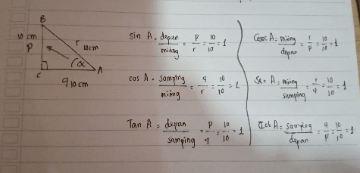 B
10 cm
P
r
10cm
α
C
A
q 10 cm
sin A = depan / miring = p / r = 10 / 10 = 1
cos A = samping / miring = q / r = 10 / 10 = 1
Tan A = depan / samping = p / q = 10 / 10 = 1
Cosec A = miring / depan = r / p = 10 / 10 = 1
A = miring / samping = r / q = 10 / 10 = 1
A = samping / depan = q / p = 10 / 10 = 1